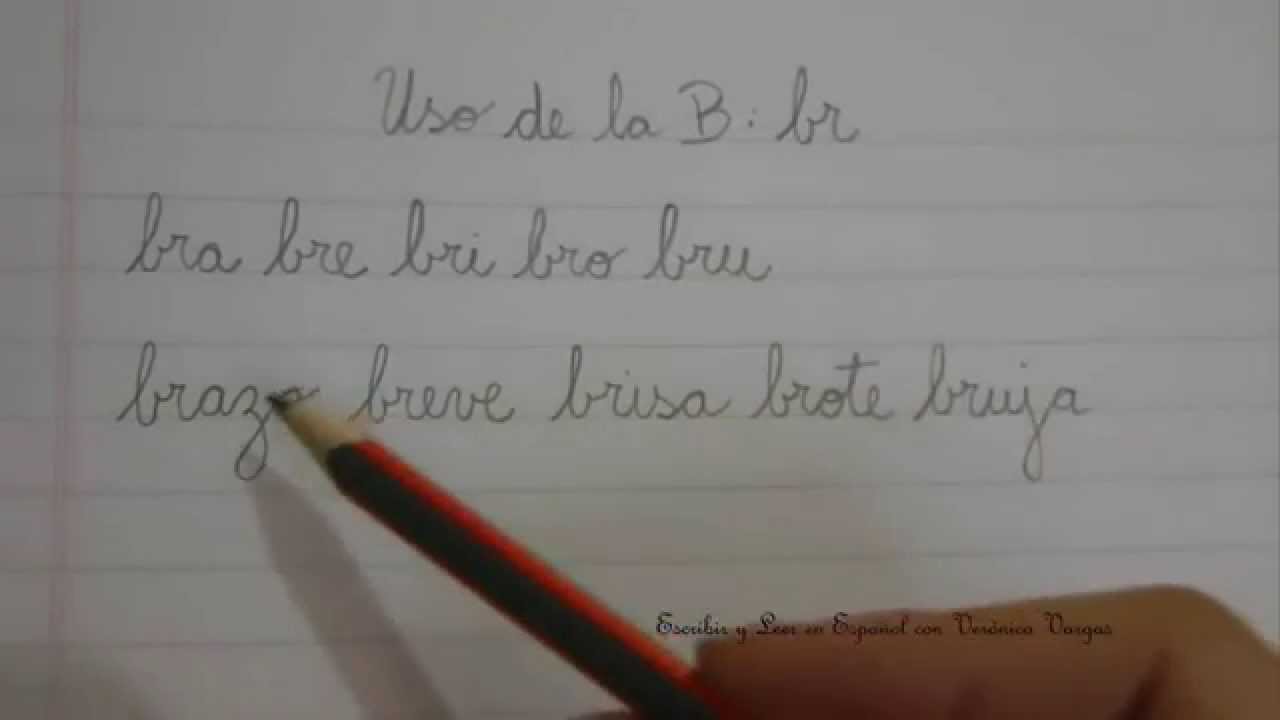 Uso de la B: br
bra bre bri bro bru
brazo breve brisa brote bruja
Escribir y Leer en Español con Verónica Vargas